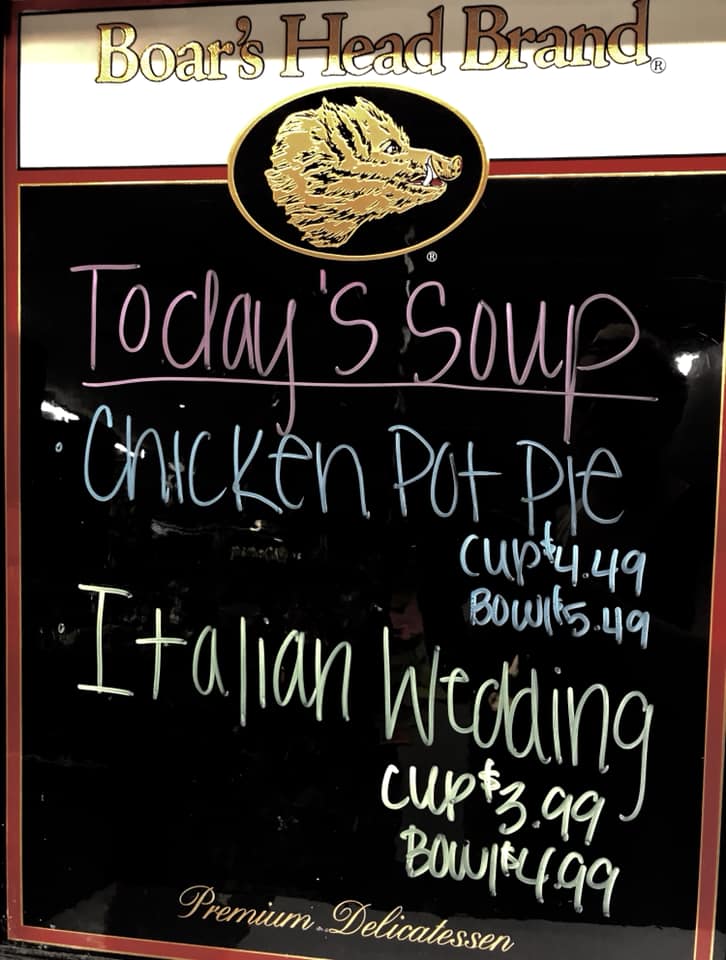 Boar's Head Brand®
®
Today's Soup
· Chicken Pot Pie
Cup $4.49
Bowl $5.49
· Italian Wedding
Cup $3.99
Bowl $4.99
Premium Delicatessen